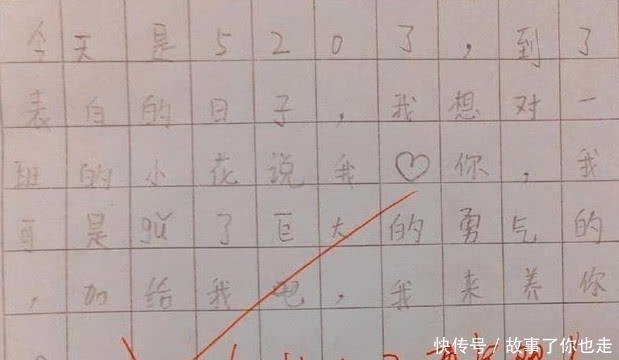 今天是520了，到了
表白的日子，我想对一
班的小花说我♡你，我
可是gǔ了巨大的勇气的
，加给我吧，我来养你
快传号／故事了你也走